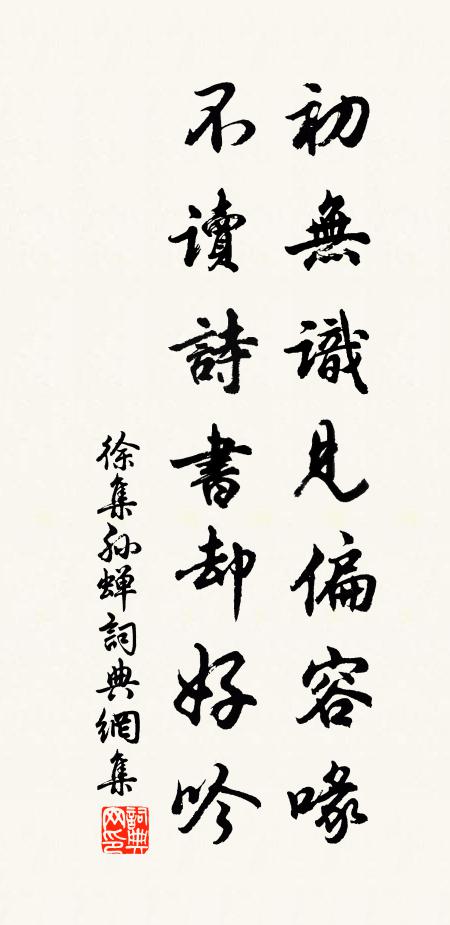 初無識見偏容喙
不讀詩書却好吟
徐集孫蟬詞典網集
詞典網印